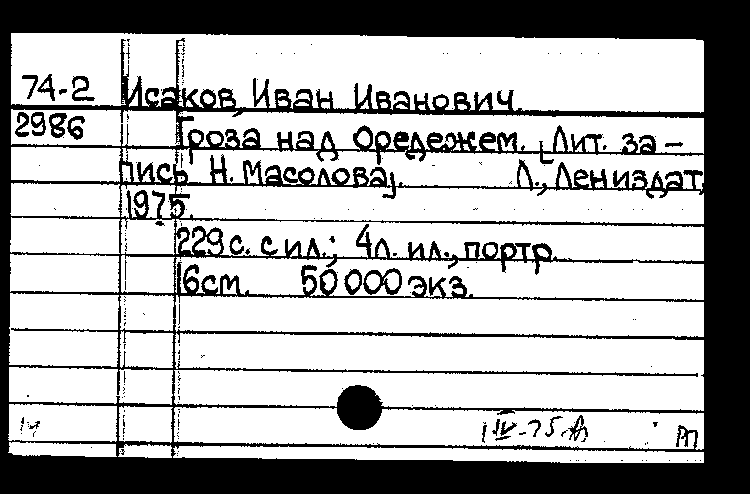 74-2 Исаков, Иван Иванович.
2986 Гроза над Оредежем. [Лит. за-
пись Н. Масолова]. Л., Лениздат,
1975.
229 с. с ил.; 4 л. ил., портр.
16 см. 50 000 экз.
1 IV-75